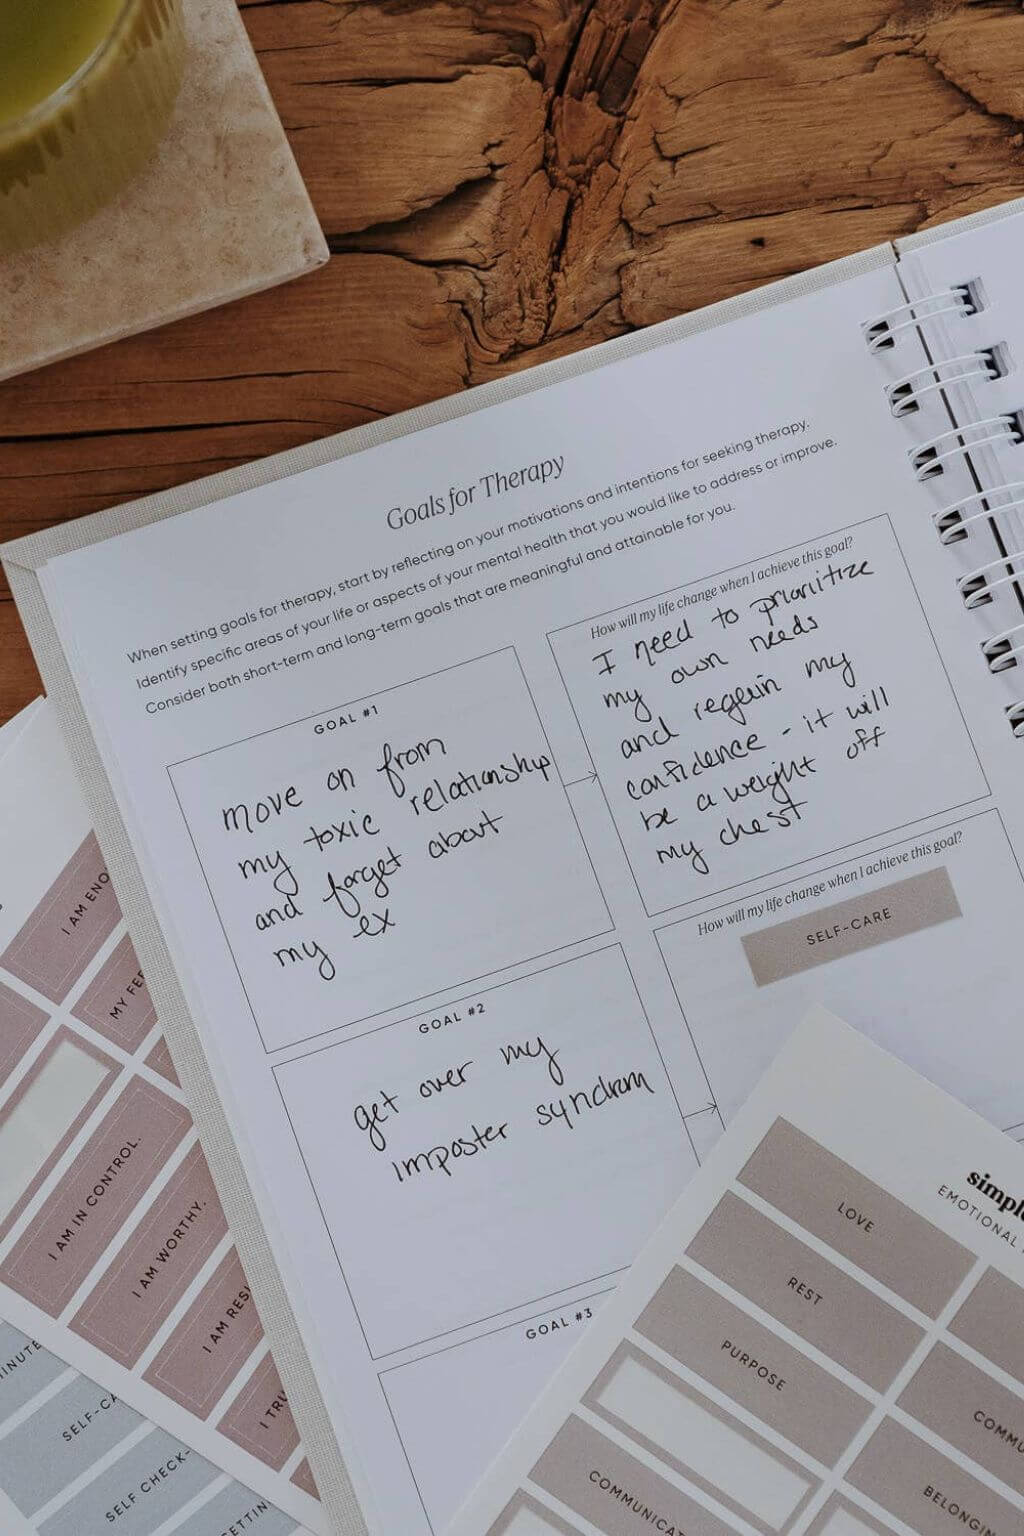 Goals for Therapy
When setting goals for therapy, start by reflecting on your motivations and intentions for seeking therapy.
Identify specific areas of your life or aspects of your mental health that you would like to address or improve.
Consider both short-term and long-term goals that are meaningful and attainable for you.
GOAL #1
move on from
my toxic relationship
and forget about
my ex
How will my life change when I achieve this goal?
I need to prioritize
my own needs
and regain my
confidence - it will
be a weight off
my chest
GOAL #2
get over my
imposter syndrom
How will my life change when I achieve this goal?
SELF-CARE
GOAL #3
I AM ENO
MY FEE
I AM IN CONTROL.
I AM WORTHY.
I AM RESI
I TRU
INUTE
SELF-CA
SELF CHECK-
ETTIN
simple
EMOTIONAL
LOVE
REST
PURPOSE
COMMU
COMMUNICAT
BELONGIN